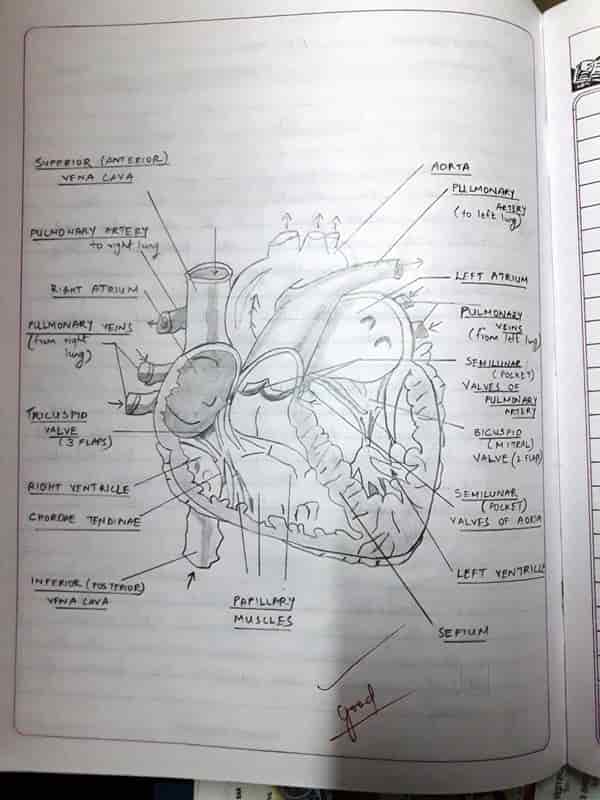 SUPERIOR (ANTERIOR)
VENA CAVA
PULMONARY ARTERY
to right lung
RIGHT ATRIUM
PULLMONARY VEINS
(from right
lung)
TRICUSPID
VALVE
(3 FLAPS)
RIGHT VENTRICLE
CHORDAE TENDINAE
INFERIOR (POSTERIOR)
VENA CAVA
PAPILLARY
MUSCLES
AORTA
PULMONARY
ARTERY
(to left lung)
LEFT ATRIUM
PULMONARY
VEINS
(from left lung)
SEMILUNAR
(POCKET)
VALVES OF
PULMONARY
ARTERY
BICUSPID
(MITRAL)
VALVE (2 FLAP)
SEMILUNAR
(POCKET)
VALVES OF AORTA
LEFT VENTRICLE
SEPTUM
good